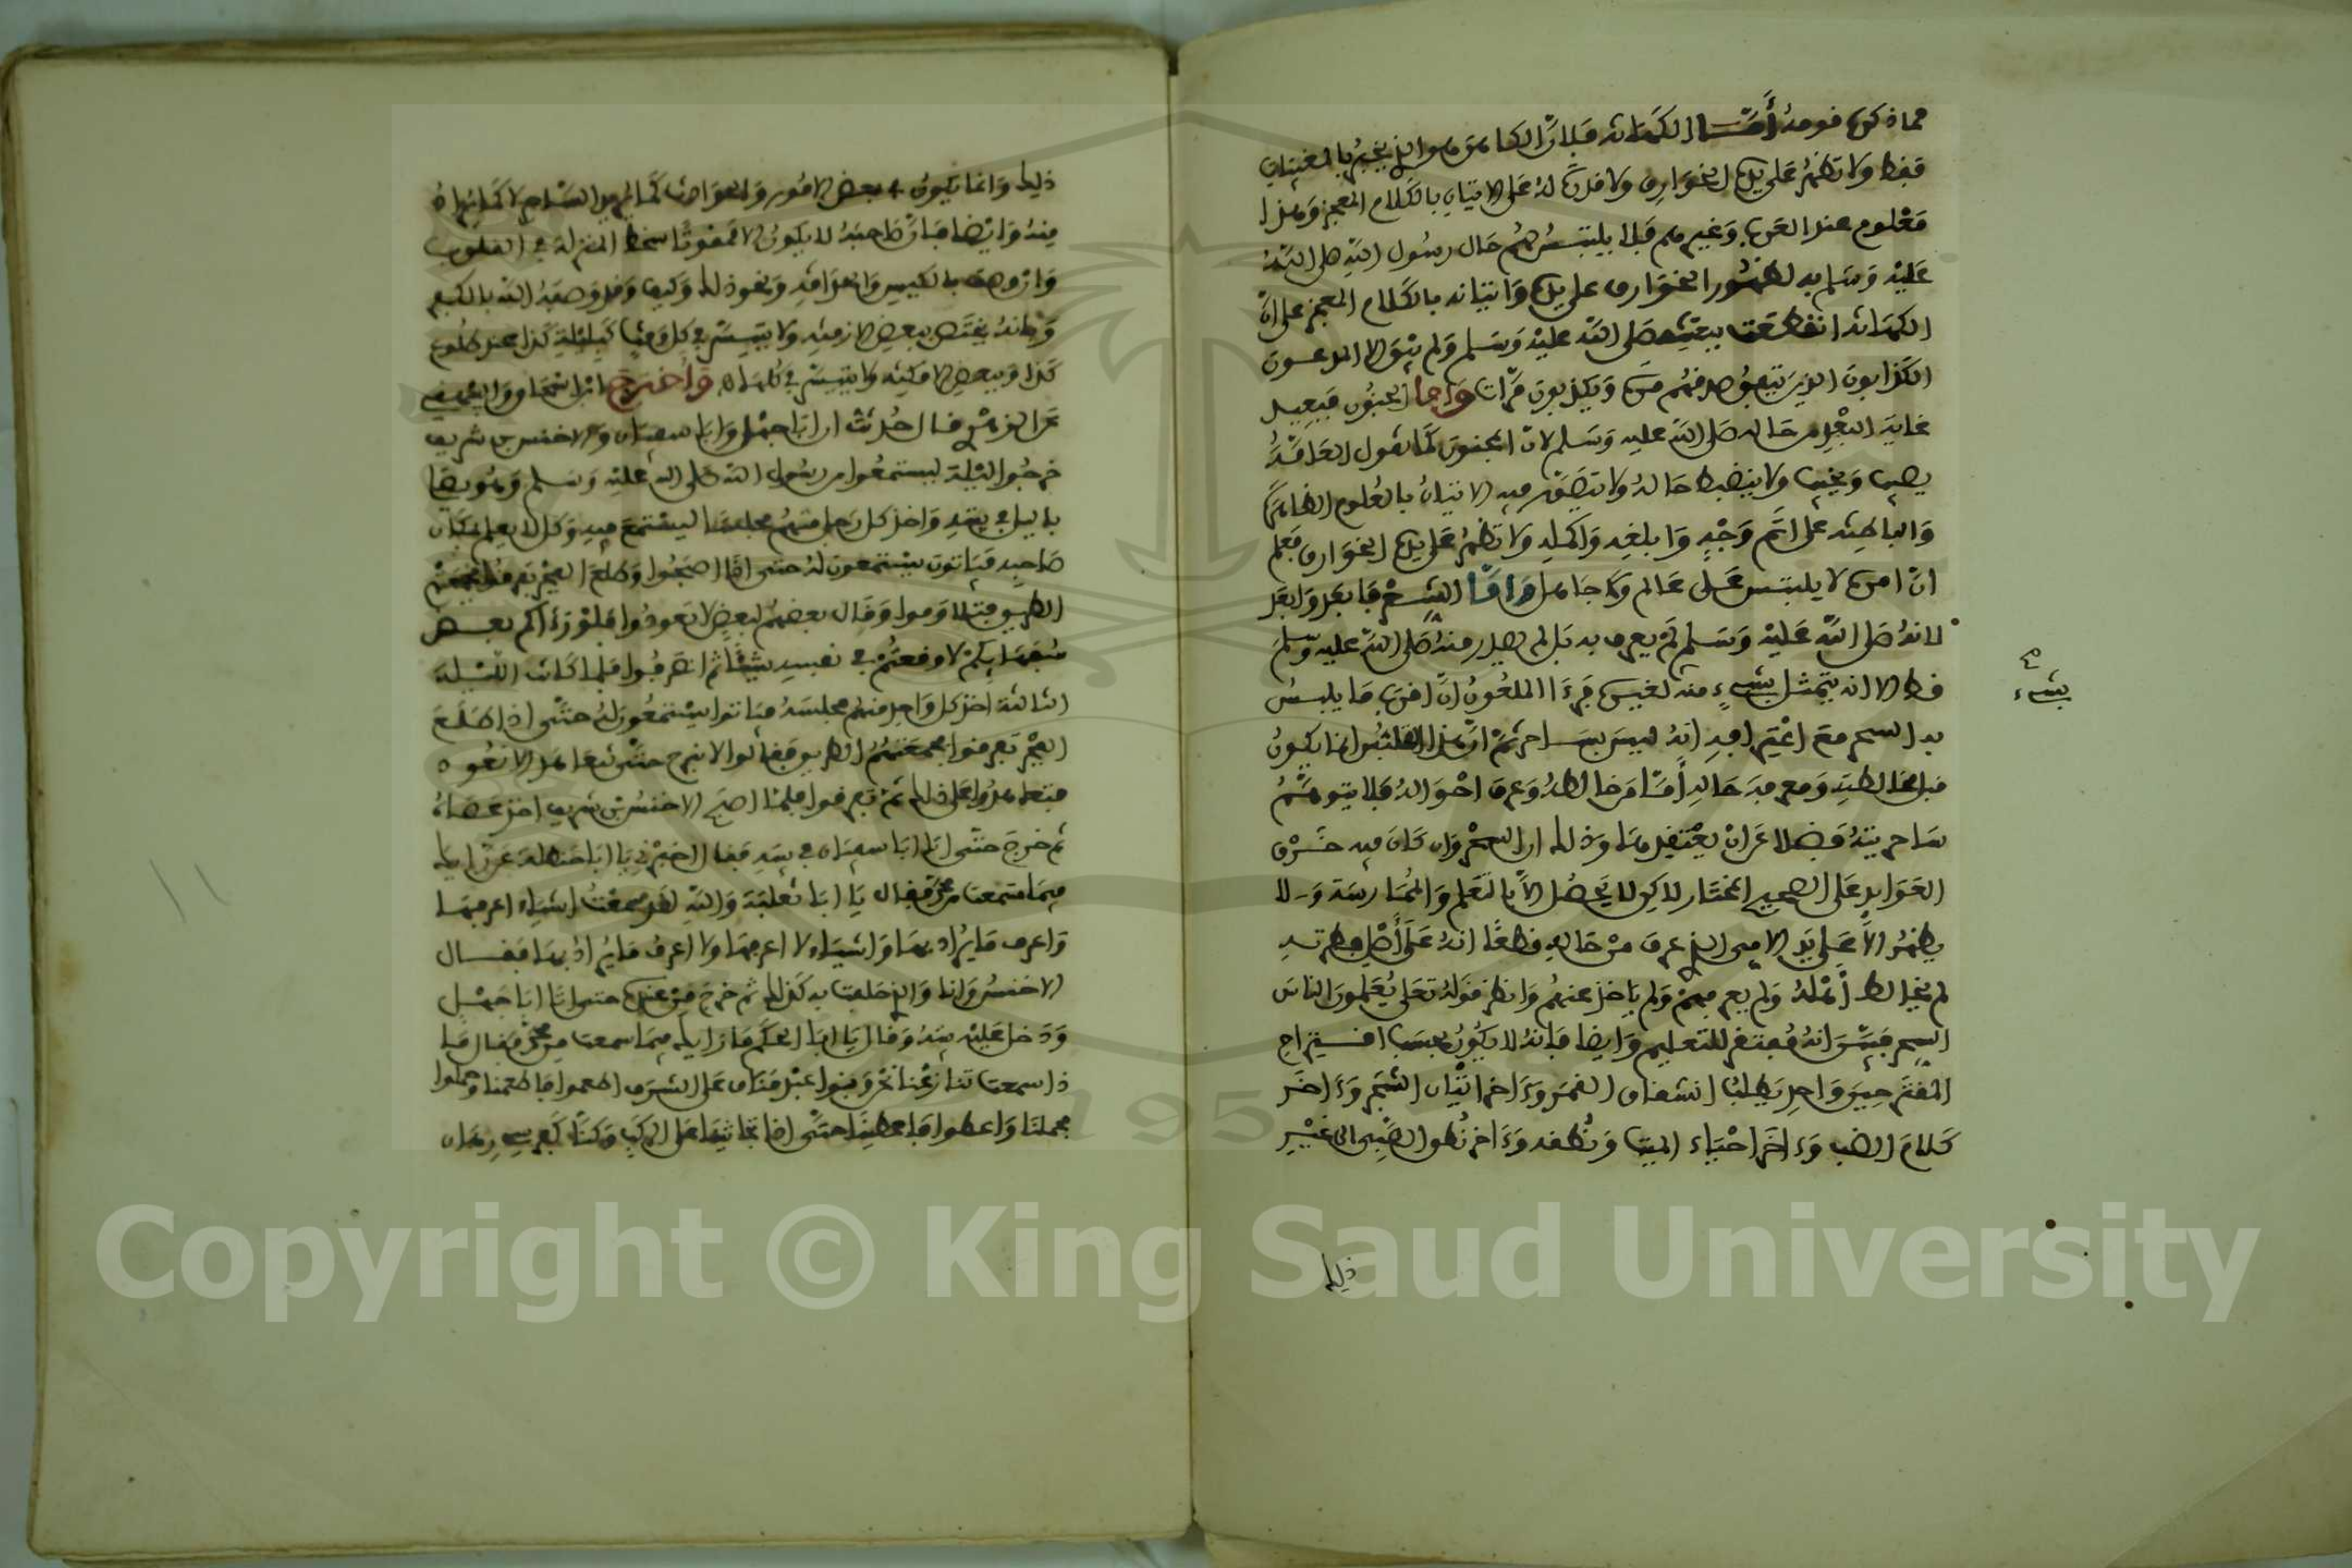 مما ذكره قومه أمّا الكهانة فلأنّ الكاهن هو الذي يخبر بالمغيبات
فقط ولا تظهر على يده الخوارق ولا قدرة له على الاتيان بالكلام المعجز وهذا
معلوم عند العرب وغيرهم فلا يلتبس لهم حال رسول الله صلى الله
عليه وسلم به لظهور الخوارق على يده واتيانه بالكلام المعجز على ان
الكهانة انقطعت ببعثته صلى الله عليه وسلم ولم يبق الا المدعون
الكذابون الذين يتفق صدقهم مرة ويكذبون مرّات واما الجنون فبعيد
غاية البعد من حاله صلى الله عليه وسلم لان المجنون كما تقول العامّة
يصيب ويخيب ولا ينضبط حاله ولا يتصور فيه الاتيان بالعلوم الظاهرة
والباطنة على اتم وجه وابلغه واكمله ولا تظهر على يده الخوارق فعلم
انّ امره لا يلتبس على عالم ولا جاهل وامّا السحر فابعد وابعد
لانه صلى الله عليه وسلم لم يعرف به بل لم يصدر منه صلى الله عليه وسلم
قط الا انه يتمثل بشيء منه لغيره فرءا الملعون انّ اقرب ما يلبس
به السحر مع اعترافه انه ليس بساحر ثم انّ هذا التلبس انما يكون
قبل المخالطة ومعرفة حاله أمّا من خالطه وعرف احواله فلا يتوهم
ساحريته فضلا عن ان يعتقدها وذلك ان السحر وان كان فيه خرق
العوايد على الصحيح المختار لاكن لا يحصل الاّ بالتعلم والممارسة ولا
يظهر الاّ على يد الامي الذي عرف من حاله قطعًا انه على أصل فطرته
لم يخالط أهله ولم يعرفهم ولم ياخذ عنهم وانظر قوله تعلى يعلمون الناس
السحر فبيّن انه مفتقر للتعليم وايضا فانه لا يكون بحسب اقتراح
المقترحين واحد يطلب انشقاق القمر وءاخر اتيان الشجر وءاخر
كلام الضب وءاخر احياء الميت ونطقه وءاخر نطق الصبي الى غير
بشيء
ذلك
ذلك وانما يكون في بعض الامور والعوارض
منه وايضا فانّ صاحبه لا يكون الا ممقوتًا ساقط المنزلة في القلوب
ونحو ذلك وكيف وقد وصفه الله بالكفر
وبانه يختص ببعض الازمنة ولا يتيسر في كل وقت كليلة كذا عند طلوع
كذا وببعض الامكنة ولا يتيسر في كلها واخرج ابن اسحاق والبيهقي
عن الزهري قال حدثت ان ابا جهل وابا سفيان والاخنس بن شريق
خرجوا ليلة ليستمعوا من رسول الله صلى الله عليه وسلم وهو يصلي
بالليل في بيته واخذ كل رجل منهم مجلسا ليستمع فيه وكل لا يعلم بمكان
صاحبه فباتوا يستمعون له حتى اذا اصبحوا وطلع الفجر تفرقوا فجمعتهم
الطريق فتلاوموا وقال بعضهم لبعض لا تعودوا فلو رءاكم بعض
سفهايكم لاوقعتم في نفسه شيئًا ثم انصرفوا فلما كانت الليلة
الثالثة اخذ كل واحد منهم مجلسه فباتوا يستمعون له حتى اذا طلع
الفجر تفرقوا فجمعتهم الطريق فقالوا لا نبرح حتى نتعاهد الا نعود
فتعاهدوا على ذلك ثم تفرقوا فلما اصبح الاخنس بن شريق اخذ عصاه
ثم خرج حتى اتى ابا سفيان في بيته فقال اخبرني يا ابا حنظلة عن رايك
فيما سمعت من محمد فقال يا ابا ثعلبة والله لقد سمعت اشياء اعرفها
واعرف ما يراد بها واشياء لا اعرفها ولا اعرف ما يراد بها فقال
الاخنس وانا والذي حلفت به كذلك ثم خرج من عنده حتى اتى ابا جهل
ودخل عليه بيته وقال يا ابا الحكم ما رايك فيما سمعت من محمد فقال ما
ذا سمعت تنازعنا نحن وبنو عبد مناف على الشرف اطعموا فاطعمنا وحملوا
فحملنا واعطوا فاعطينا حتى اذا تجاثينا على الركب وكنا كفرسي رهان
Copyright © King Saud University
195